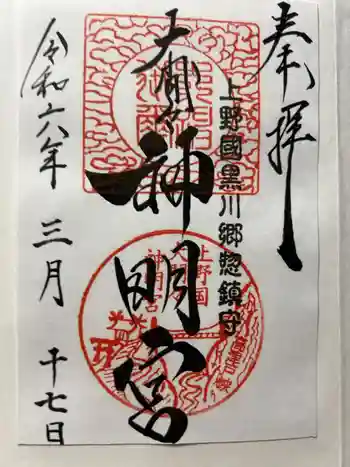 奉拝
上野國黒川郷惣鎮守
大間々神明宮
上野国
大間々
神明宮
令和六年 三月 十七日